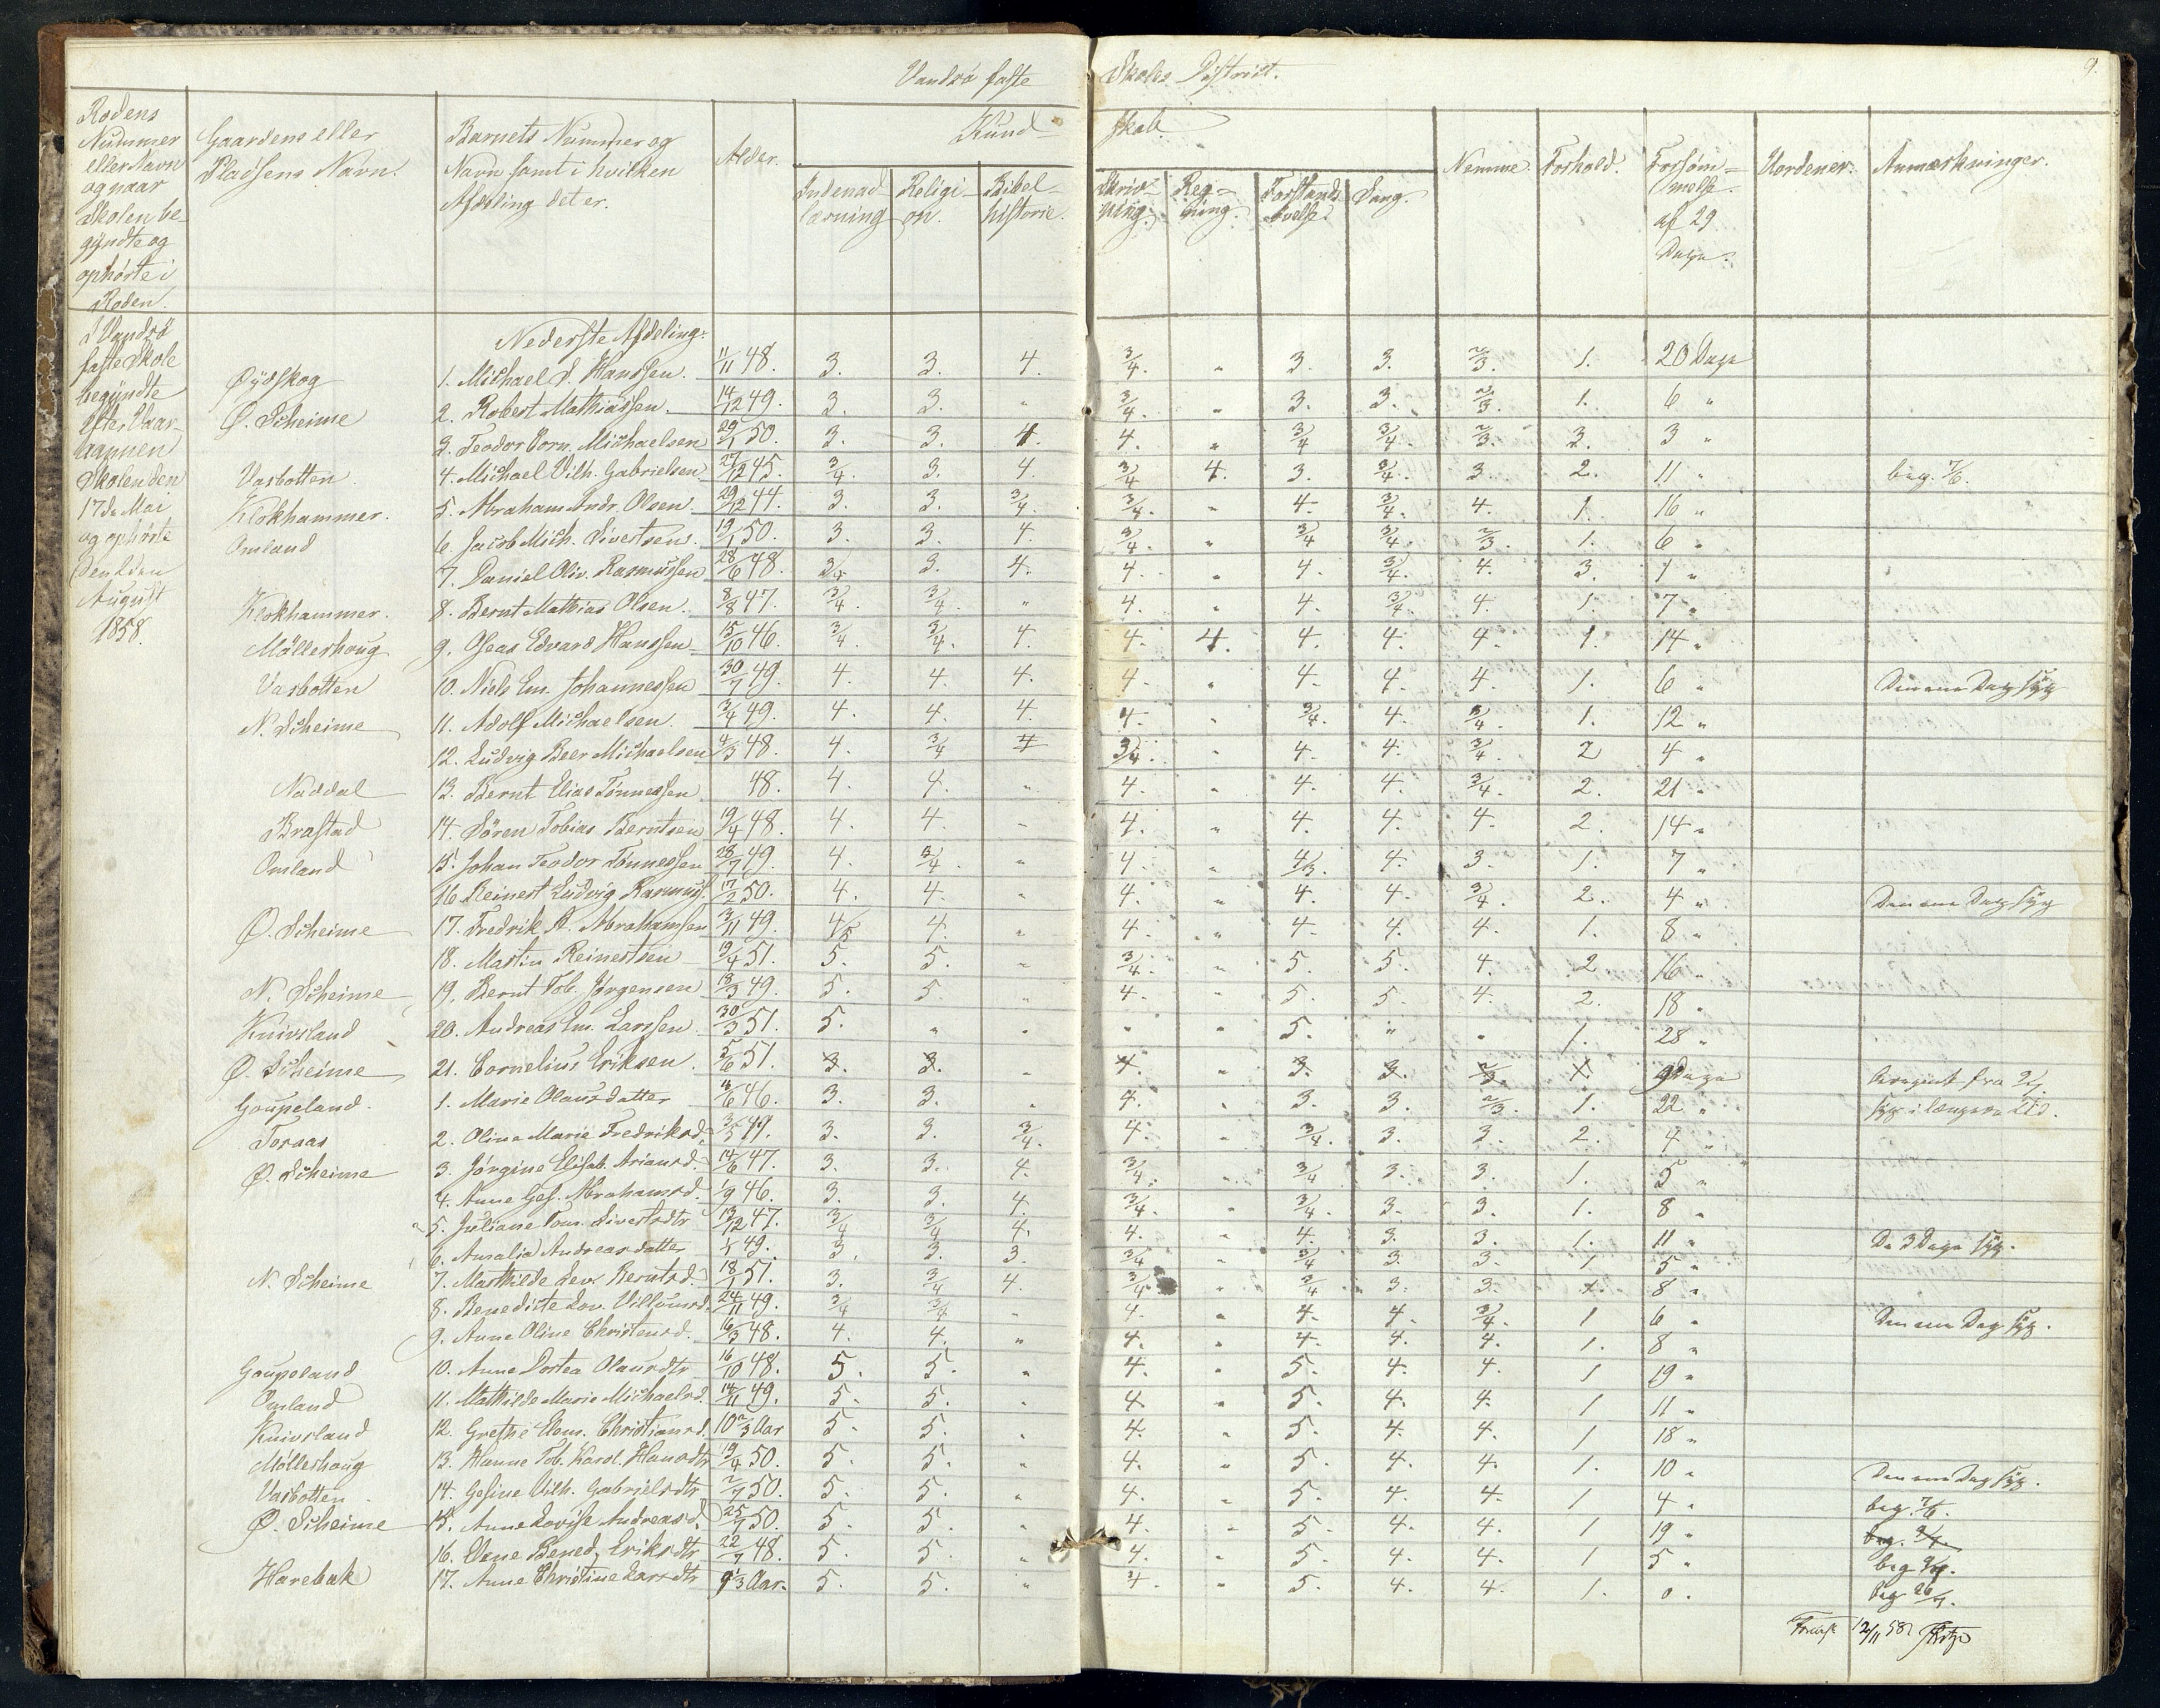 Vandsö faste Skoles District.
9.
Rodens Nummer eller Navn og naar Skolen begyndte og ophörte i Roden.
Gaardens eller Pladsens Navn.
Barnets Nummer og Navn samt i hvilken Afdeling det er.
Alder.
Kundskab
Indenadlæsning
Religion.
Bibelhistorie.
Skrivning.
Regning.
Forstandsøvelse.
Sang.
Nemme.
Forhold.
Forsømmelse af 29 Dage.
Anmærkninger.
I Vandsö
faste Skole
begyndte
efter Vaar-
Skolen den
17de Mai
og ophörte
den
August
1858.
Nederste Afdeling:
Øydskog 1. Michael S. Hanssen. 11/11 48. 3. 3. 4. 3/4. " 3. 3. 2/3. 1. 20 Dage
Ø. Scheime 2. Robert Mathiassen. 14/12 49. 3. 3. " 3/4. " 3. 3. 2/3. 1. 6 "
3. Teodor Corn. Michaelsen 29/1 50. 3. 3. 4. 4. " 3/4 3/4. 2/3. 3. 3 "
Vasbotten 4. Michael Vilh. Gabrielsen 27/12 45. 3/4. 3. 4. 3/4 4. 3. 3/4. 3. 2. 11 " beg. 7/6.
Klokhammer. 5. Abraham Andr. Olsen. 29/12 44. 3. 3. 3/4. 3/4. " 4. 3/4. 4. 1. 16 "
Omland 6. Jacob Mich. Sivertsen. 19/1 50. 3. 3. 4. 3/4. " 3/4 3/4. 2/3. 1. 6 "
7. Daniel Oliv. Rasmussen 28/6 48. 3/4 3. 4. 4. " 4. 3/4. 4. 3. 1 "
Klokhammer. 8. Bernt Mathias Olsen. 8/8 47. 3/4. 3/4. " 4. " 4. 3/4. 4. 1. 7 "
Möllerhoug 9. Oseas Edvard Hanssen 15/10 46. 3/4 3/4. 4. 4. 4. 4. 4. 4. 1. 14 "
Vasbotten 10. Niels Em. Johannessen 30/7 49. 4. 4. 4. 4. " 4. 4. 4. 1. 6 " Den ene Dag syg
N. Scheime 11. Adolf Michaelsen. 3/4 49. 4. 4. 4. 4. " 3/4. 4. 3/4. 1. 12 "
12. Ludvig Beer Michaelsen 4/3 48. 4. 3/4 4 3/4. " 4. 4. 3/4. 2 4 "
Naddal 13. Bernt Elias Tönnessen 48. 4. 4. " 4. " 4. 4. 3/4. 2. 21 "
Brastad 14. Sören Tobias Berntsen 19/4 48. 4. 4. " 4. " 4. 4. 4. 2. 14 "
Omland 15. Johan Teodor Tönnessen 28/7 49. 4. 3/4. " 4. " 4/3. 4. 3. 1. 7 "
16. Reinert Ludvig Rasmuss. 17/2 50. 4. 4. " 4. " 4. 4. 3/4. 2. 4 " Den ene Dag syg
Ø. Scheime 17. Fredrik A. Abrahamsen 3/11 49. 4/5 4. " 4. " 4. 4. 4. 1. 8 "
18. Martin Reinertsen 19/4 51. 5. 5. " 3/4. " 5. 5. 4. 2 16 "
N. Scheime 19. Bernt Tob. Jörgensen 13/3 49. 5. 5. " 4. " 5. 5. 4. 2. 18 "
Knivsland 20. Andreas Em. Larssen. 30/3 51. 5. " " " " 5. " " 1. 28 "
Ø. Scheime 21. Cornelius Eriksen. 5/6 51. 3. 3. " 4. " 3. 3. 2/3. 1. 9 Dage
Goupeland. 1. Marie Olausdatter 4/6 46. 3. 3. " 4. " 3. 3. 2/3. 1. 22 " syg i længere Tid.
Toraas 2. Oline Marie Fredriksd. 3/5 49. 3. 3. 3/4. 4. " 3/4. 3. 3. 2. 4 "
Ø. Scheime 3. Jörgine Elisab. Ariansd. 14/6 47. 3. 3. 4. 3/4. " 3/4 3. 3. 1. 5 "
4. Anne Ges. Abrahamsd. 1/9 46. 3. 3. 4. 3/4. " 3/4. 3. 3. 1. 8 "
5. Juliane Tom. Sivertsdtr 13/12 47. 3/4 3/4 4. 4. " 4. 3. 3. 1. 11 " De 3 Dage syg.
6. Amalia Andreasdatter 49. 3. 3. 3. 3/4 " 3/4 3. 3. 1 5 "
N. Scheime 7. Mathilde Lev. Berntsd. 18/1 51. 3. 3/4 4. 3/4 " 3/4 3. 3. 1. 8 "
8. Benedicte Lov. Villumsd. 24/11 49. 3/4 3/4 " 4. " 4. 4. 3/4. 1 6 " Den ene Dag syg.
9. Anne Oline Christensd. 16/3 48. 4. 4. " 4. " 4. 4. 4. 1. 8 "
Goupeland 10. Anne Dortea Olausdtr 16/10 48. 5. 5. " 4. " 5. 4. 4. 1 19 "
Omland 11. Mathilde Marie Michaelsd. 14/11 49. 5. 5. " 4. " 5. 4. 4. 1 11 "
Knivsland 12. Grethe Elem. Christiansd. 10 2/3 Aar 5. 5. " 4. " 5. 4. 4. 1 18 "
Möllerhoug 13. Hanne Tob. Karol. Hansdtr 19/4 50. 5. 5. " 4. " 5. 4. 4. 1. 10 " Den ene Dag syg.
Vasbotten. 14. Gesine Vilh. Gabrielsdtr 2/7 50. 5. 5. " 4. " 5. 4. 4. 1 4 " beg. 7/6.
Ø. Scheime 15. Anne Lovise Andreasd. 25/7 50. 5. 5. " 4. " 5. 4. 4. 1 19 "
16. Elene Bened. Eriksdtr 22/7 48. 5. 5. " 4. " 5. 4. 4. 1 5 "
Harebak 17. Anne Christine Larsdtr 9 1/3 Aar. 5. 5. " 4. " 5. 4. 4. 1. 0. beg 26/7.
12/11 58.